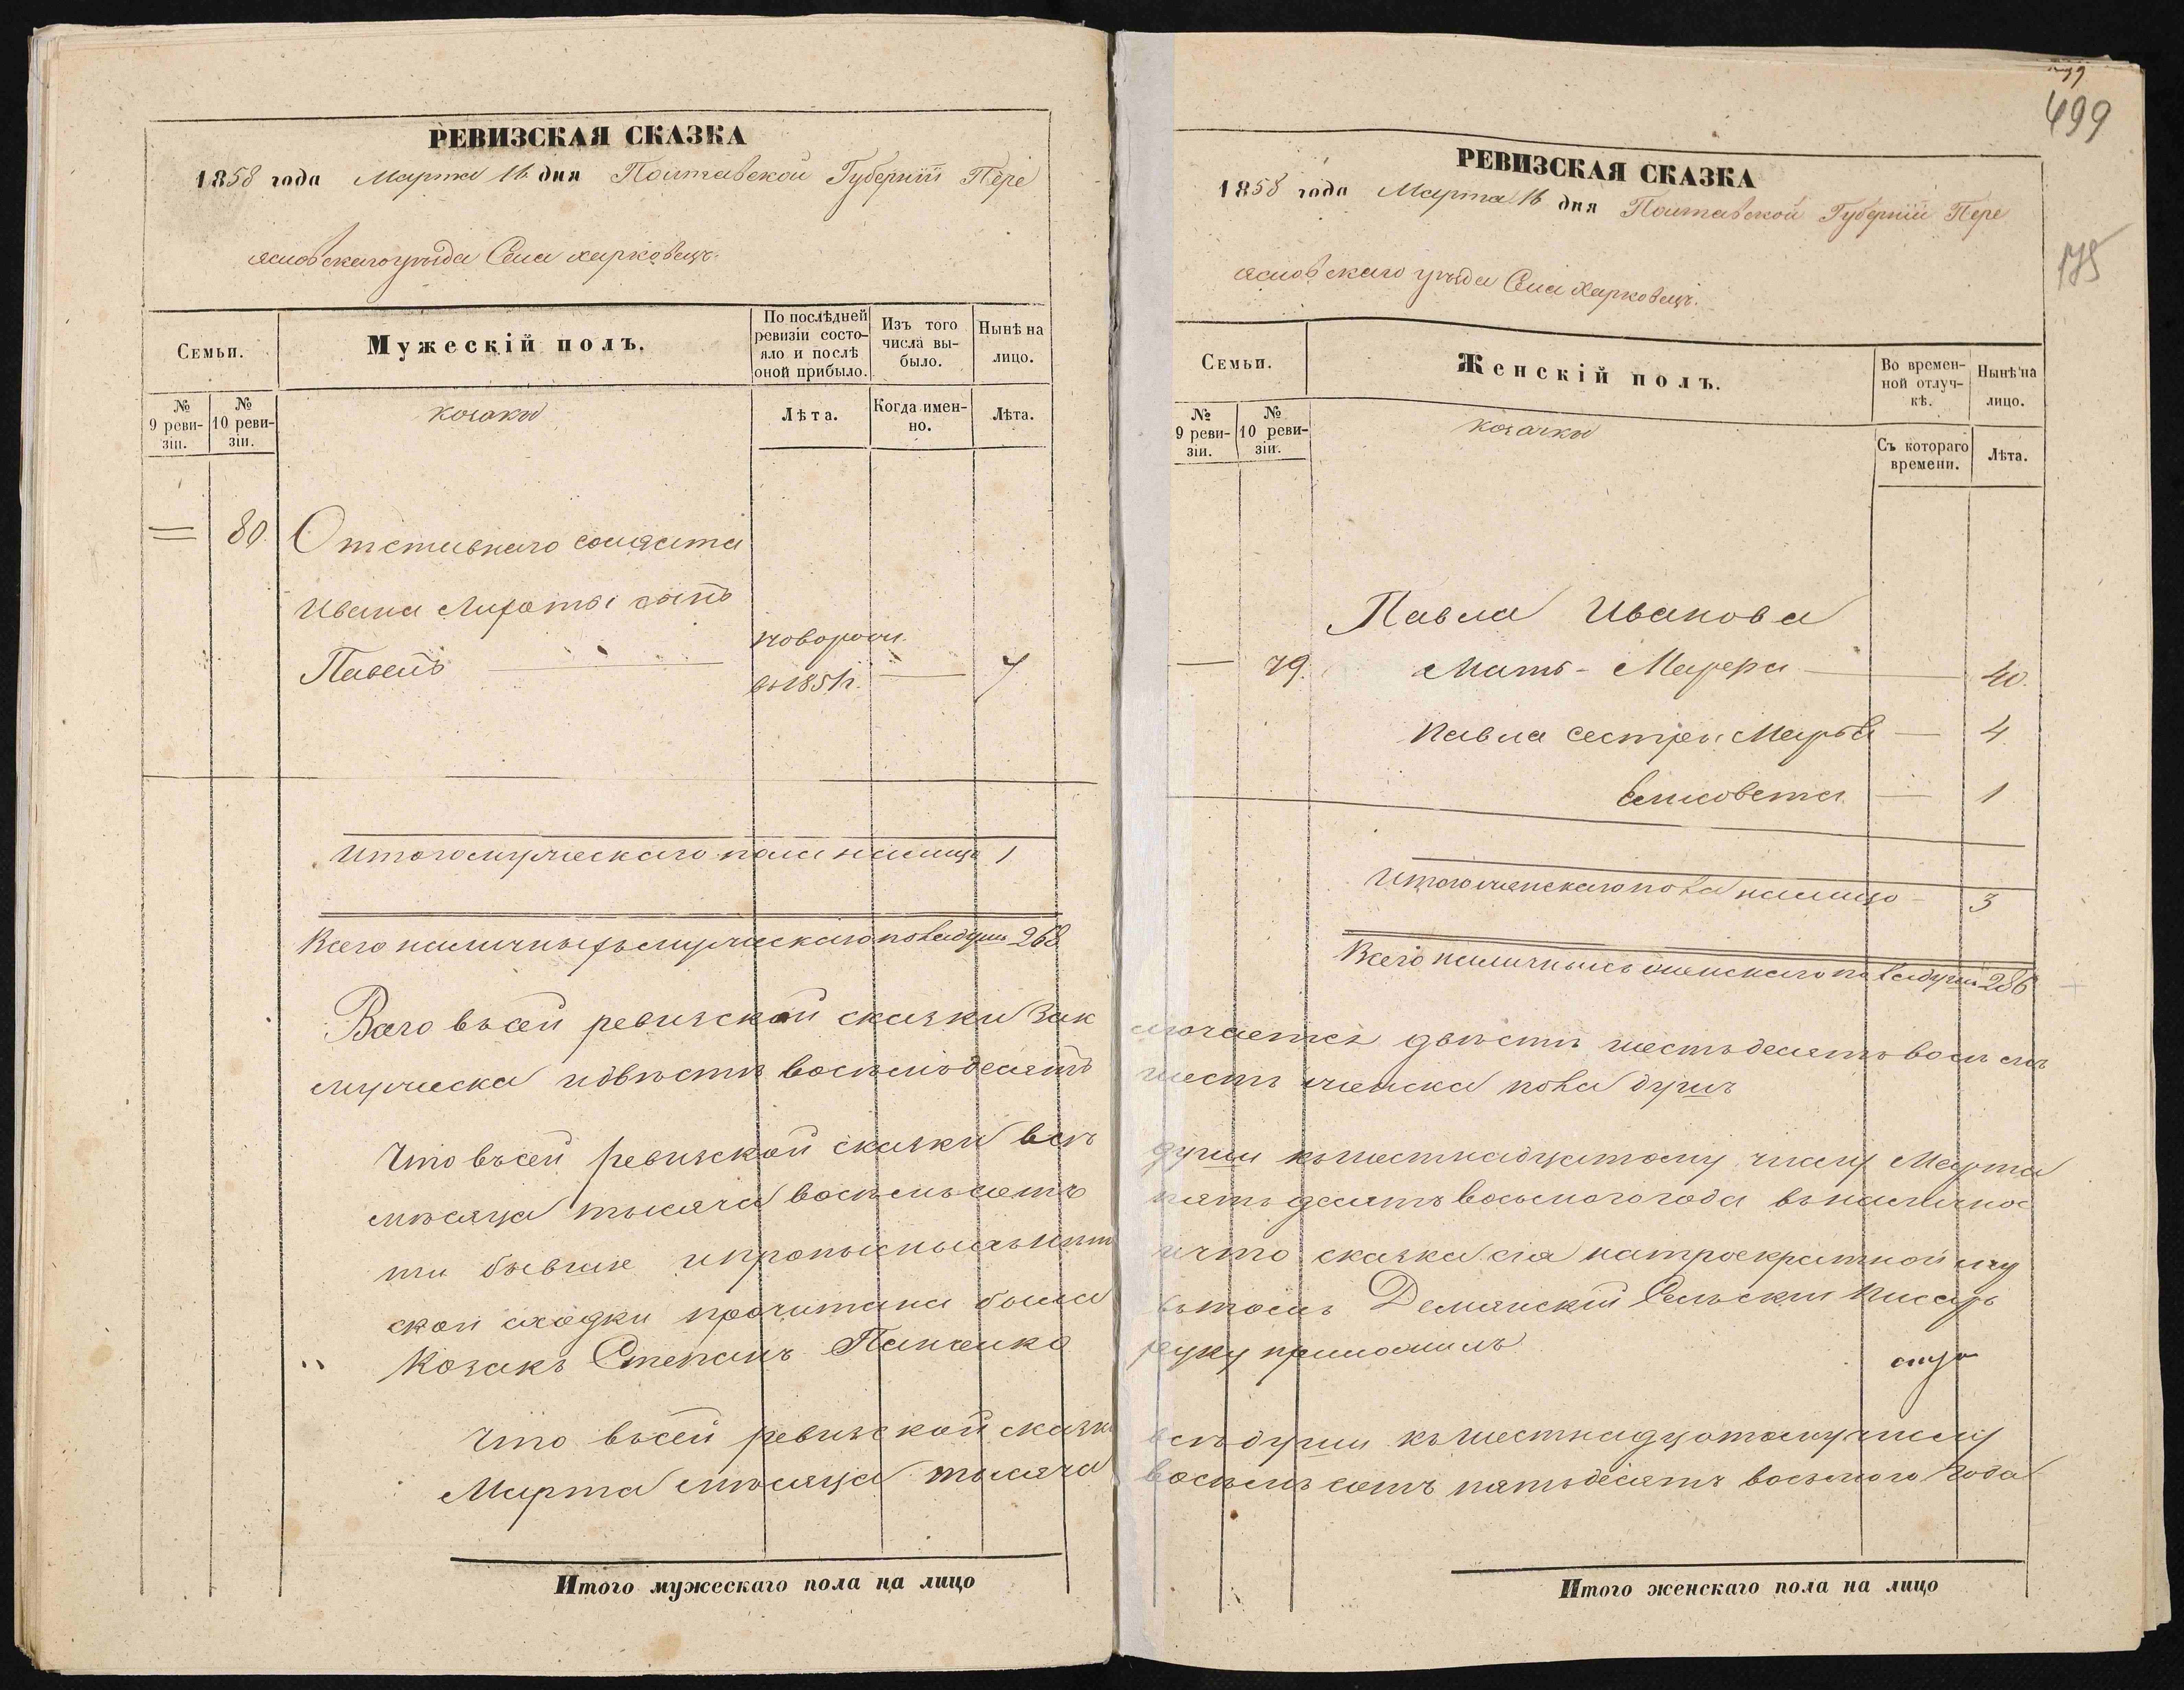 РЕВИЗСКАЯ СКАЗКА
1858 года Марта 16 дня Полтавской Губерніи Пере
яславскаго уѣзда Села харковець.
Семьи.
Мужескій полъ.
По послѣдней ревизіи состояло и послѣ оной прибыло.
Изъ того числа выбыло.
Нынѣ на лицо.
№ 9 ревизіи.
№ 10 ревизіи.
козаки
Лѣта.
Когда именно.
Лѣта.
= 80. Отставнаго солдата
Ивана сынъ
новорож.
Павелъ — въ 1851 г. — 7
Итого мужескаго пола налицо 1
Всего наличныхъ мужескаго пола душъ 268
Всего въ сей ревизской сказки Зак
мужеска и двѣсти восемьдесятъ
Что въ сей ревизской сказки всѣ
мѣсяца тысяча восемьсотъ
ти бывшіе
ской сходки прочитана была
Козакъ Степанъ
Что въ сей ревизской сказки
Марта мѣсяца тысяча
Итого мужескаго пола на лицо
499
175
РЕВИЗСКАЯ СКАЗКА
1858 года Марта 16 дня Полтавской Губерніи Пере
яславскаго уѣзда Села Харковець.
Семьи.
Женскій полъ.
Во временной отлучкѣ.
Нынѣ на лицо.
№ 9 ревизіи.
№ 10 ревизіи.
козачки
Съ котораго времени.
Лѣта.
Павла Иванова
— 79. Мать - — 40.
Павла сестры Марья — 4
Елисовета — 1
Итого женскаго пола налицо - 3
Всего наличныхъ женскаго пола душъ 286
лючается двѣсти шестьдесятъ восемь
шесть женска пола душъ
души къ шестнадцатому числу Марта
пятьдесятъ восьмого года въ наличнос
и что сказка сія на троекратной
въ томъ Демянскій Сельскій Писарь
руку приложилъ
всѣ души къ шестнадцатому числу
восемь сотъ пятьдесятъ восьмого Года
Итого женскаго пола на лицо